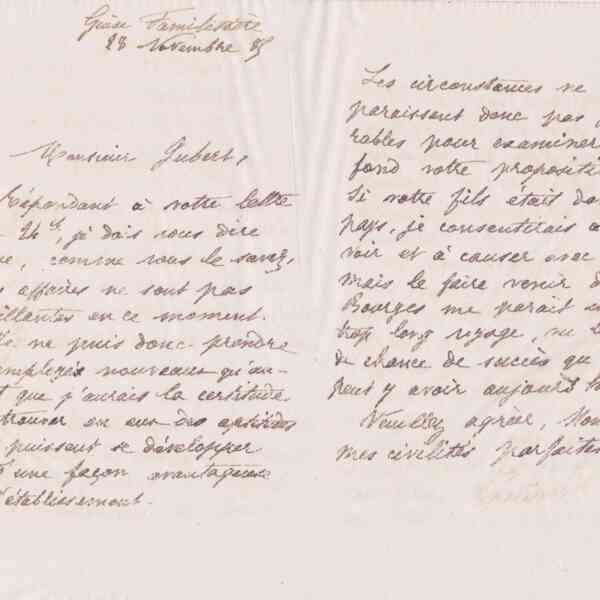 Guise Familistère
28 Novembre 85
Monsieur Gubert,
Répondant à votre lettre
24 ct, je dois vous dire
, comme vous le savez,
affaires ne sont pas
illantes en ce moment.
ne puis donc prendre
employés nouveaux qu'au-
t que j'aurais la certitude
trouver en eux des aptitudes
puissent se développer
une façon avantageuse
établissement.
Les circonstances ne
paraissent donc pas
rables pour examiner
fond votre propositi
Si votre fils était da
pays, je consentirais
voir et à causer avec
mais le faire venir d
Bourges me parait un
trop long voyage, vu
de chance de succès qu
peut y avoir aujourd'hu
Veuillez agréer, Mon
mes civilités parfaites